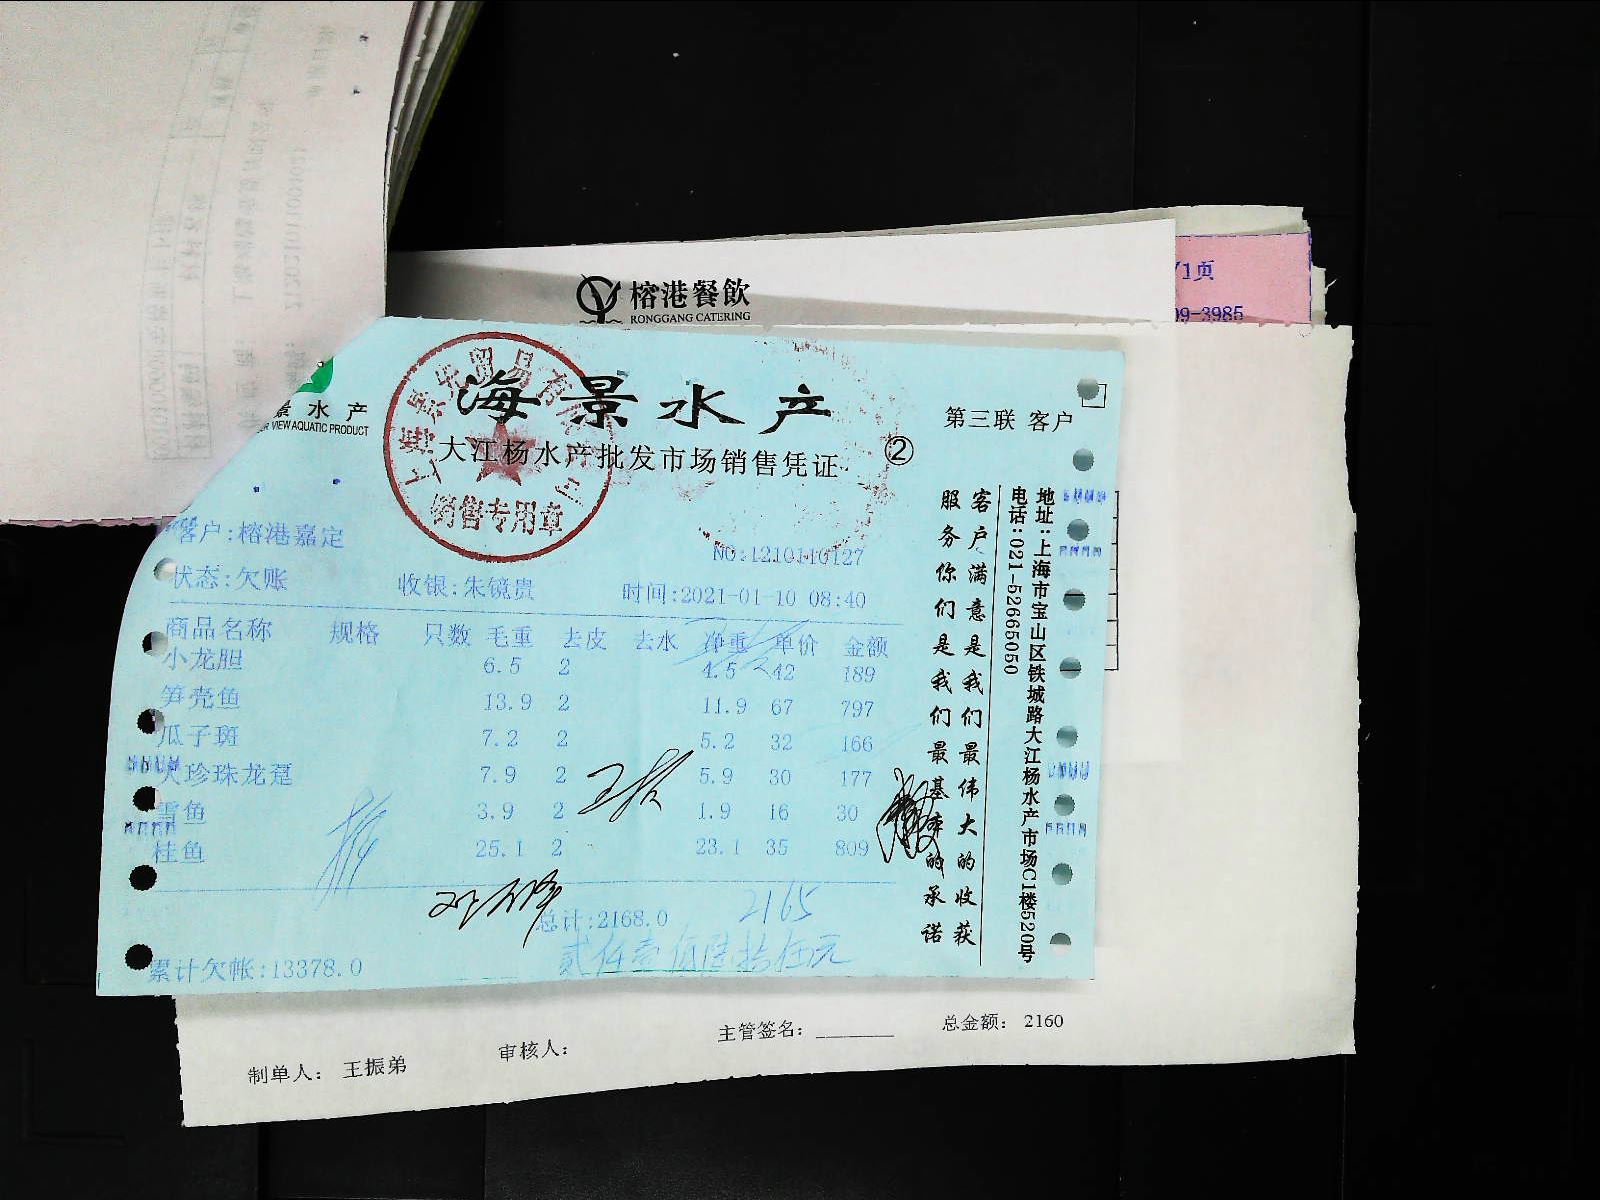 榕港餐飲
RONGGANG CATERING
/1页
99-3985
海景水产
景水产
VIEW AQUATIC PRODUCT
大江杨水产批发市场销售凭证
②
第三联 客户
销售专用章
客户:榕港嘉定
NO:1210110127
状态:欠账 收银:朱镜贵 时间:2021-01-10 08:40
商品名称 规格 只数 毛重 去皮 去水 净重 单价 金额
小龙胆 6.5 2 4.5 42 189
笋壳鱼 13.9 2 11.9 67 797
瓜子斑 7.2 2 5.2 32 166
大珍珠龙趸 7.9 2 5.9 30 177
雪鱼 3.9 2 1.9 16 30
桂鱼 25.1 2 23.1 35 809
总计:2168.0
2165
贰仟壹佰陆拾伍元
累计欠帐:13378.0
地址:上海市宝山区铁城路大江杨水产市场C1楼520号
电话:021-52665050
客户满意是我们最伟大的收获
服务你们是我们最基本的承诺
主管签名:
总金额: 2160
制单人: 王振弟
审核人: